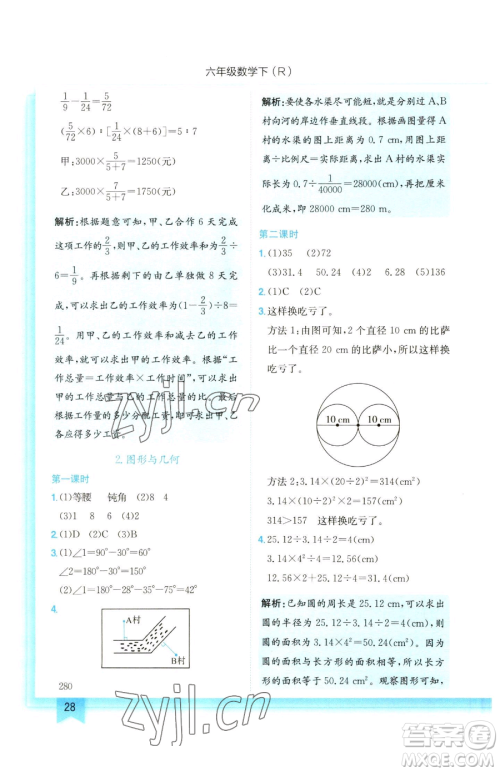 六年级数学下(R)
1/9-1/24=5/72
(5/72×6):[1/24×(8+6)]=5:7
甲:3000×5/(5+7)=1250(元)
乙:3000×7/(5+7)=1750(元)
解析:根据题意可知,甲、乙合作 6 天完成
这项工作的2/3,甲、乙的工作效率和为2/3÷
6=1/9。根据剩下的由乙单独完成,可以
求出乙的工作效率为(1-2/3)÷8=
1/24。用甲、乙的工作效率和减去乙的工作
效率,可以求出甲的工作效率。根据“工
作总量=工作效率×工作时间”,可以求
出甲的工作总量与乙的工作总量。最后
根据工作量的多少分配工资,可以求出甲、
乙各应得多少工资。
2.图形与几何
第一课时
1.(1)等腰 钝角 (2)8 4
(3)1 8 6 (4)216
2.(1)D (2)C (3)B
3.(1)∠1=90°-30°=60°
∠2=180°-30°=150°
(2)∠1=180°-28°-75°=77°
4.
A村
B村
280
28
解析:要使各水渠尽可能短,就是分别过 A、B
村向河的岸边作垂直线段。根据画图量得 A
村的水渠的图上距离为 0.7 cm,用图上距离
除以比例尺可以求出实际距离。A 村的水渠
实际长为 0.7÷1/40000=28000(cm),再把厘米
化成米,即 28000 cm=280 m。
第二课时
1.(1)35 (2)72
(3)31.4 50.24 (4)2 6.28 (5)136
2.(1)C (2)C
3.这样换吃亏了。
方法 1:由图可知,2 个直径 10 cm 的比萨
比一个直径 20 cm 的比萨小,所以这样换
吃亏了。
10 cm 10 cm
方法 2:3.14×(20÷2)²=314(cm²)
3.14×(10÷2)²×2=157(cm²)
314>157 这样换吃亏了。
4.25.12÷3.14÷2=4(cm)
3.14×4²÷4=12.56(cm)
12.56×2+4=29.12(cm)
解析:已知圆的周长是 25.12 cm,可以求出
圆的半径为 25.12÷3.14÷2=4(cm),
圆的面积为 3.14×4²=50.24(cm²),长方
形的面积和圆的面积相等,所以长方形的
面积也等于 50.24 cm²。观察图形可以
zyjl.cn
zyjl.cn
答案圈
MXQE.COM